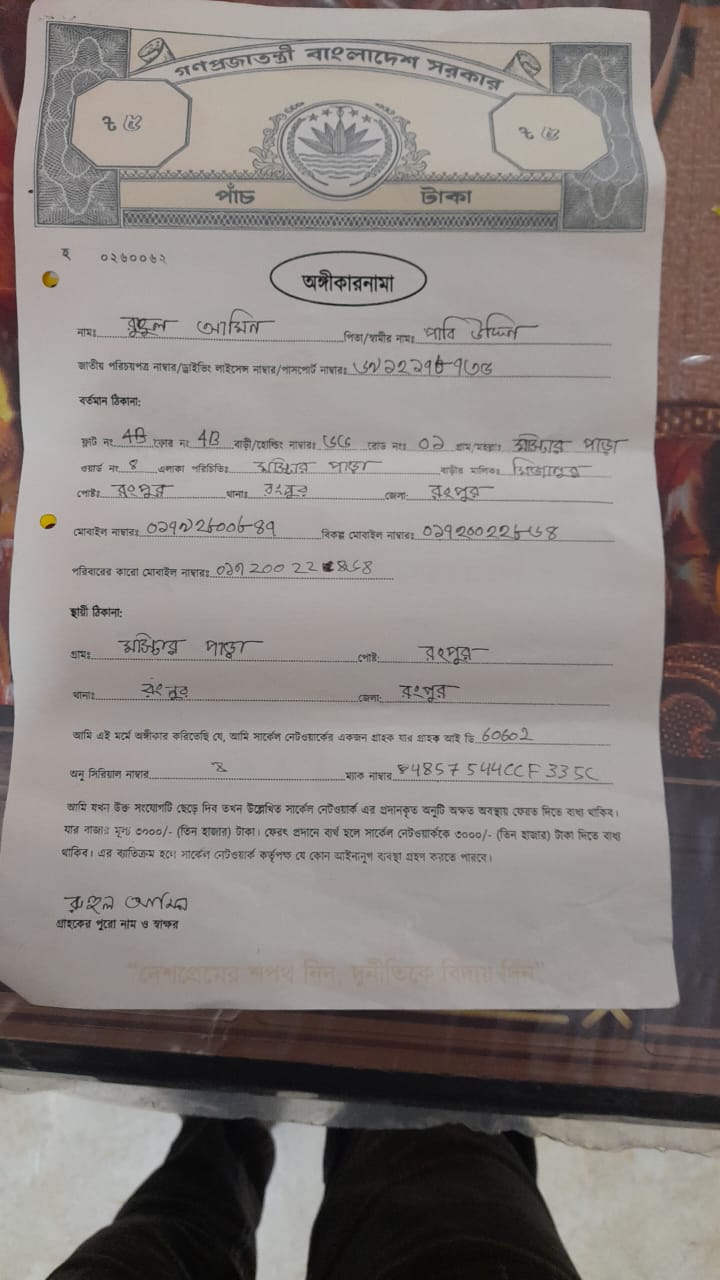 গণপ্রজাতন্ত্রী বাংলাদেশ সরকার
৳ ৫ ৳ ৫
পাঁচ টাকা
হ ০২৬০০৬২
অঙ্গীকারনামা
নামঃ রুহুল আমিন পিতা/স্বামীর নামঃ উদ্দিন
জাতীয় পরিচয়পত্র নাম্বার/ড্রাইভিং লাইসেন্স নাম্বার/পাসপোর্ট নাম্বারঃ
বর্তমান ঠিকানা:
ফ্লাট নং 4B ফ্লোর নং 4B বাড়ী/হোল্ডিং নাম্বারঃ রোড নংঃ ০১ গ্রাম/মহল্লাঃ পাড়া
ওয়ার্ড নং ৪ এলাকা পরিচিতিঃ পাড়া বাড়ীর মালিকঃ
পোষ্টঃ রংপুর থানাঃ রংপুর জেলাঃ রংপুর
মোবাইল নাম্বারঃ বিকল্প মোবাইল নাম্বারঃ
পরিবারের কারো মোবাইল নাম্বারঃ
স্থায়ী ঠিকানা:
গ্রামঃ পাড়া পোষ্ট: রংপুর
থানাঃ রংপুর জেলাঃ রংপুর
আমি এই মর্মে অঙ্গীকার করিতেছি যে, আমি সার্কেল নেটওয়ার্কের একজন গ্রাহক যার গ্রাহক আই ডি 60602
অনু সিরিয়াল নাম্বার ম্যাক নাম্বার 48575444CCF335C
আমি যখন উক্ত সংযোগটি ছেড়ে দিব তখন উল্লেখিত সার্কেল নেটওয়ার্ক এর প্রদানকৃত অনুটি অক্ষত অবস্থায় ফেরত দিতে বাধ্য থাকিব।
যার বাজার মূল্য ৩০০০/- (তিন হাজার) টাকা। ফেরৎ প্রদানে ব্যর্থ হলে সার্কেল নেটওয়ার্ককে ৩০০০/- (তিন হাজার) টাকা দিতে বাধ্য
থাকিব। এর ব্যতিক্রম হলে সার্কেল নেটওয়ার্ক কর্তৃপক্ষ যে কোন আইনানুগ ব্যবস্থা গ্রহণ করতে পারবে।
রুহুল আমিন
গ্রাহকের পুরো নাম ও স্বাক্ষর
"দেশপ্রেমের শপথ নিন, দুর্নীতিকে বিদায় দিন"